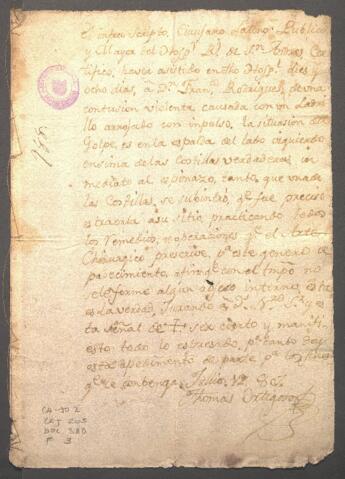 El infra scripto, Cirujano Latino Publico
y Mayor del Hosp.l R.l de S.n Andres Cer
tifico, haver asistido en dho Hosp.l dies y
ocho dias, a D.n Fran.co Rodrigues, de una
contucion violenta causada con un Ladri
llo arrojado con impulso, la situasion del
Golpe, es en la espalda del lado isquierdo
ensima de las Costillas verdaderas in
mediato al espinazo, tanto, que una de
las Costillas, se
estraerla a su sitio, practicando todos
los remedios, y operaciones q.e el Arte
Chirurgico prescrive, p.a este genero de
padecimiento, afin q.e con el tmpo no
se le forme algun interno, esta
es la verdad, Jurando a D.s N.ro S.r y es
ta señal de + ser cierto y manifi
esto todo lo espresado, p.r tanto doy
esta a pedimento de parte p.a los fines
q.e le conbenga, Julio, 12, de
Thomas Ortigoso
CA-JO 2
CAJ 205
DOC 380
F 3